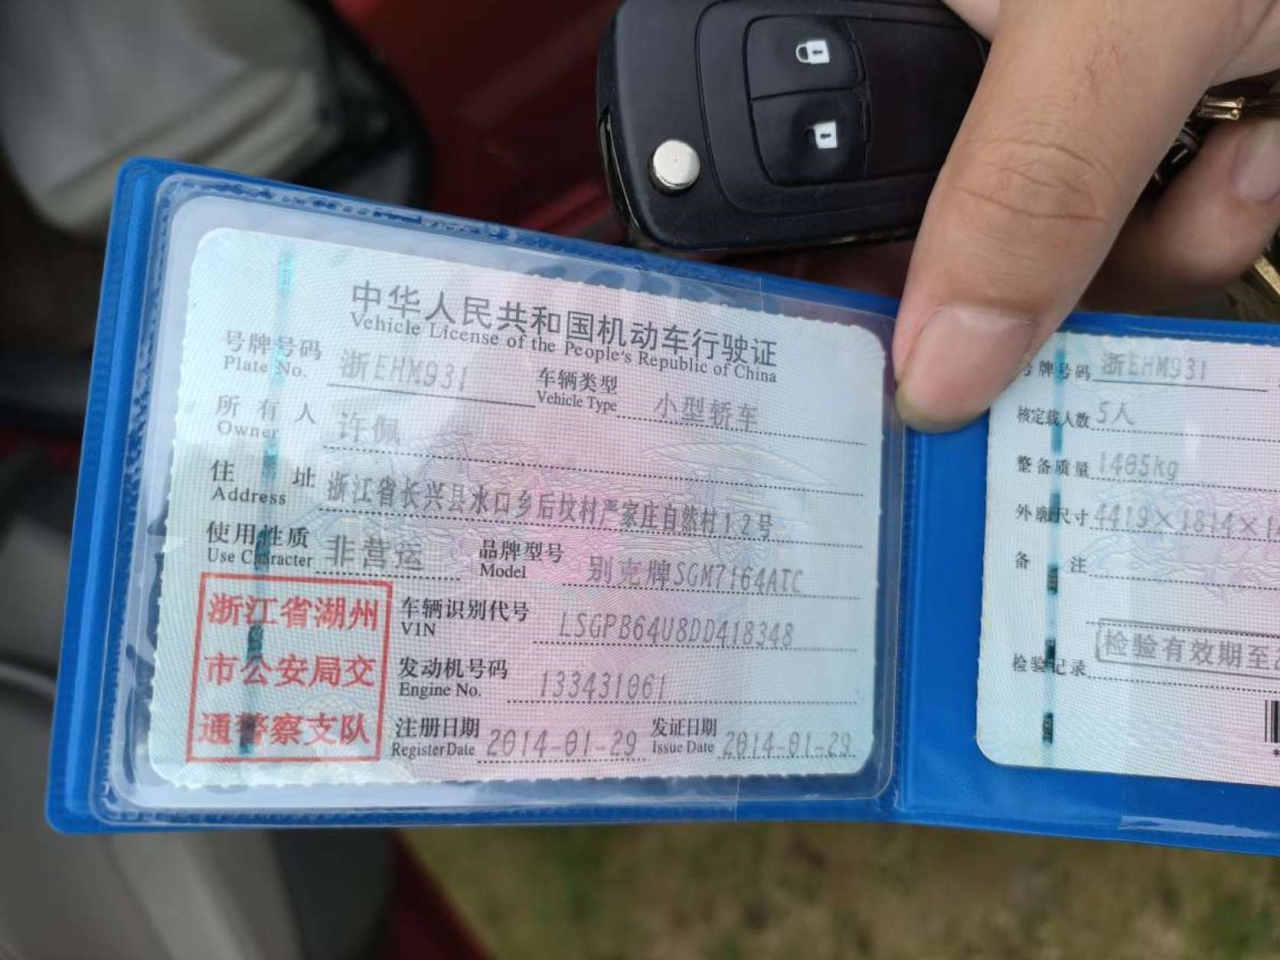 中华人民共和国机动车行驶证
Vehicle License of the People's Republic of China
号牌号码 浙EHM931 车辆类型 小型轿车
Plate No. Vehicle Type
所有人 许佩
Owner
住址 浙江省长兴县水口乡后坟村严家庄自然村12号
Address
使用性质 非营运 品牌型号 别克牌SGM7164ATC
Use Character Model
浙江省湖州
市公安局交
通警察支队
车辆识别代号 LSGPB64U8DD418348
VIN
发动机号码 133431061
Engine No.
注册日期 2014-01-29 发证日期 2014-01-29
Register Date Issue Date
号牌号码 浙EHM931
核定载人数 5人
整备质量 1405kg
外廓尺寸 4419×1814×1
备注
检验有效期至2
检验记录